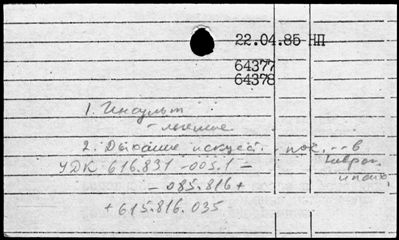 22.04.85 НП
64377
64378
1. Инсульт
- лечение
2. Дыхание искусст. - пок. -- в
УДК 616.831 -005.1 -
- 085.816 +
+ 615.816.035